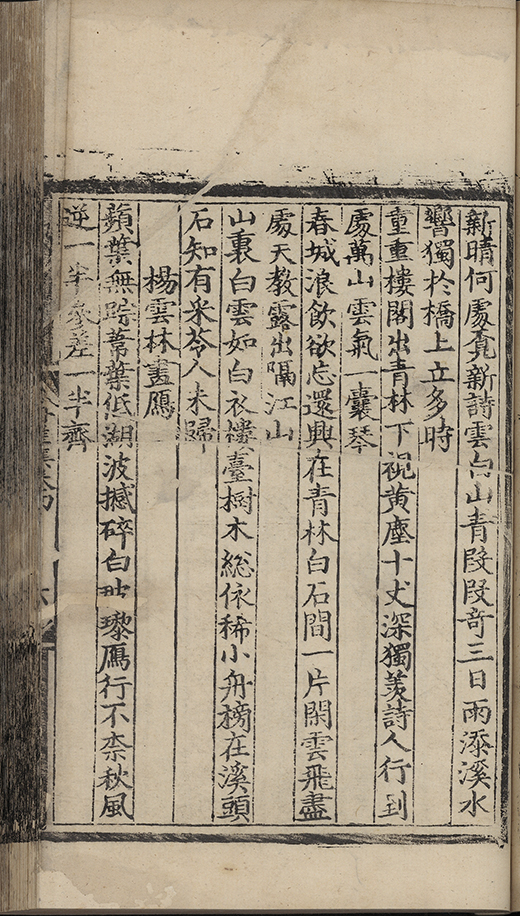 新晴何處覓新詩雲白山青段段奇三日雨添溪水
響獨於橋上立多時
重重樓閣出青林下視黃塵十丈深獨羨詩人行到
處萬山雲氣一囊琴
春城浪飲欲忘還興在青林白石間一片閑雲飛盡
處天教露出隔江山
山裏白雲如白衣樓臺樹木總依稀小舟榜在溪頭
石知有采苓人未歸
楊雲林畫鴈
蘋葉無踪葦葉低湖波撼碎白玻瓈鴈行不柰秋風
逆一半參差一半齊